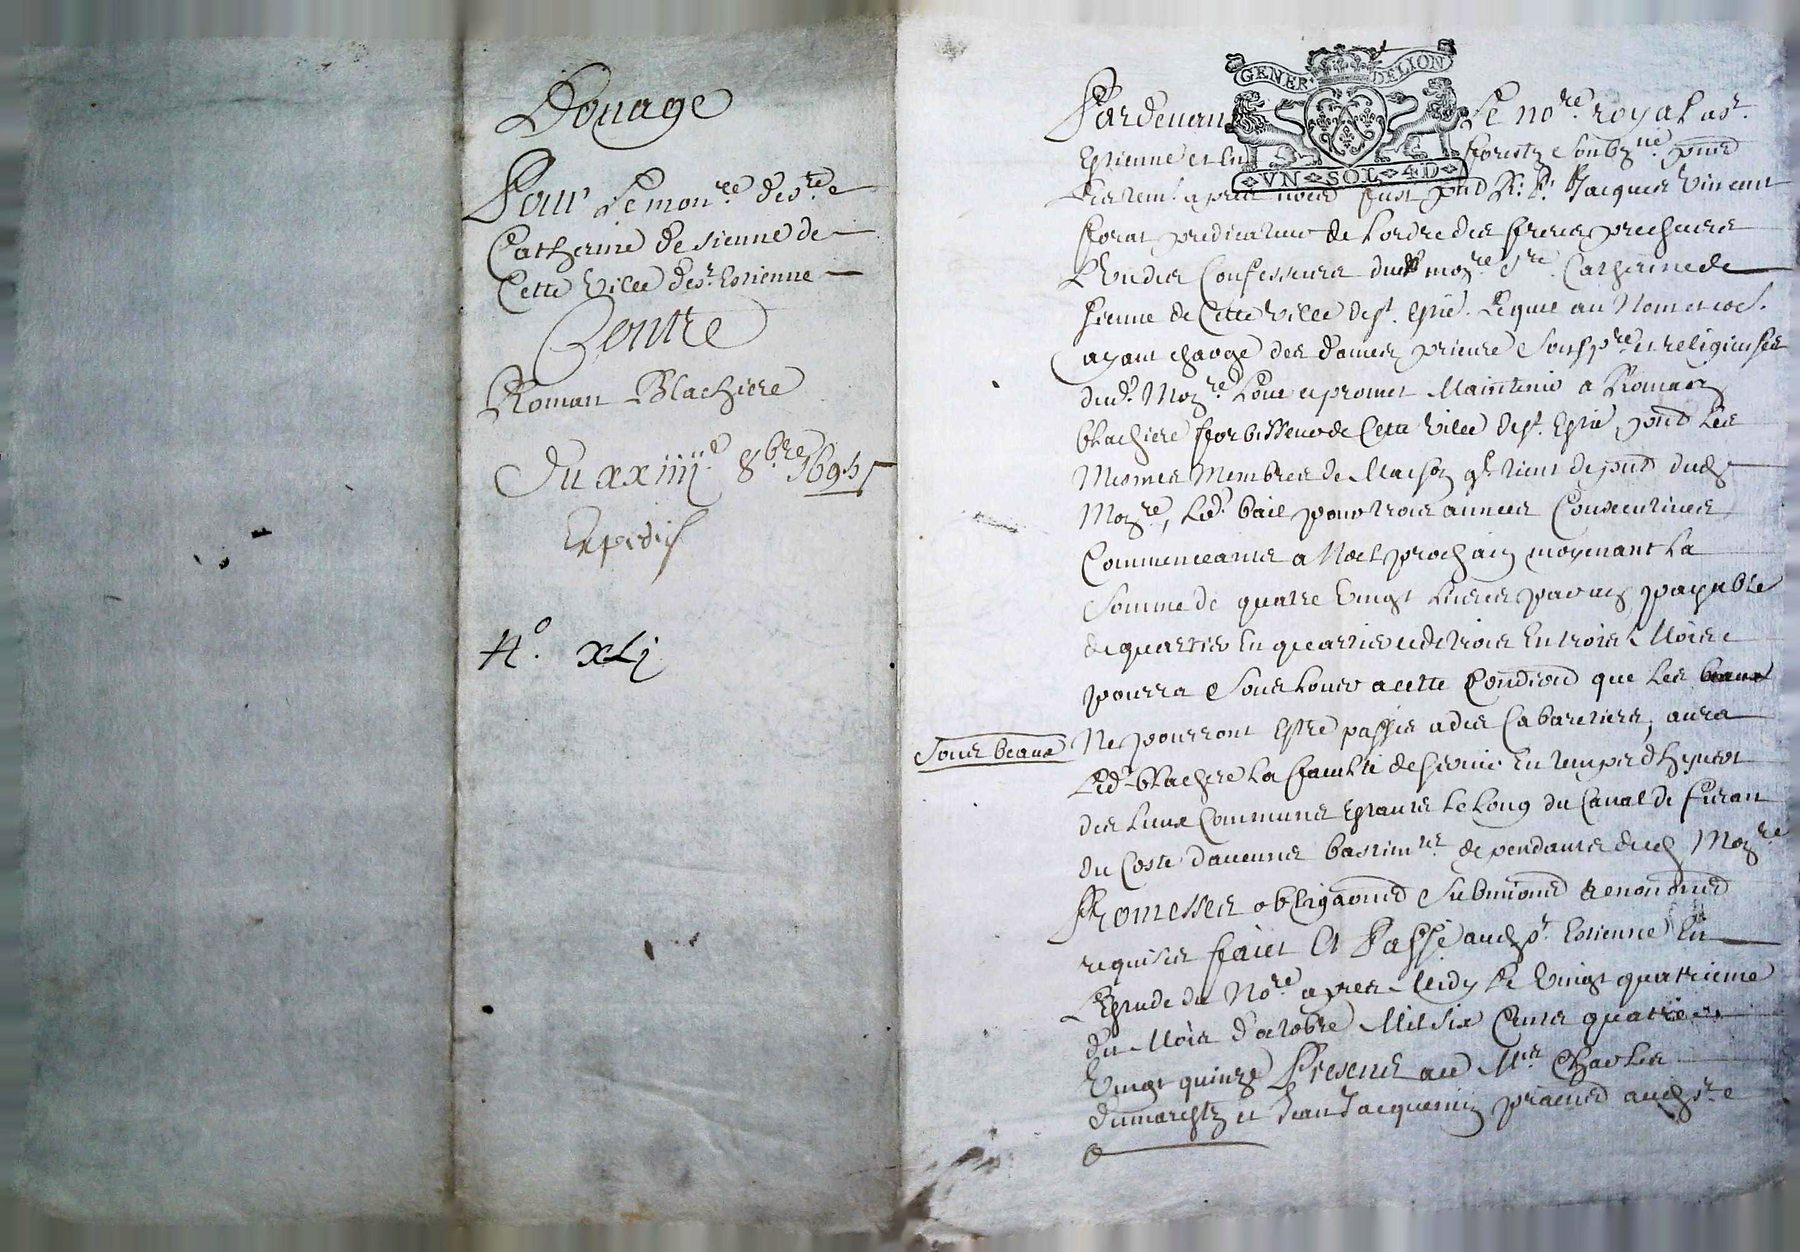 Louage
Pour Le mon.re de s.te
Catherine de sienne de
Cette Ville de s.t Estienne
Contre
Roman Blachiere
Du xxiiii.e 8.bre 1695
Expedié
N.o xLj
GENER. DE LION
VN SOL 4 D
Pardevant Le no.re royal a s.t
Estienne et en forestz soubz.né
apres nous fust p.nt R. P. Jacques Vincent
predicateur de Lordre des freres prescheurs
L'un des Confesseurs dud mon.re s.te Catherine de
sienne de Cette Ville de s.t Estie. Lequel au Nom et
ayant charge des dames prieure Souspre et religieuses
dud. Mon.re Loue et promet Maintenir a Roman
blachiere fforbisseur de Cette Ville de s.t Estie p.nt Les
Mesmes Membres de Maison q.l tient de p.nt dud
Mon.re, Led. bail pour trois annees Consecutives
Commenceants a Noel prochain moyenant La
Somme de quatre Vingt Livres par an payable
de quartier En quartier et de trois En trois Mois
pourra Sous Louer a cette Condiond que Les baux
Sous beaux
Ne pourront Estre passés a des Cabaretiers, aura
Led. blachere La faculté de En temps d'hyver
des Lieux Communs Estants Le Long du Canal de furan
du Coste bastim.ts dependants dud Mon.re
Promesses obligaons Submions Renonons
requises ffaict Et Passé aud s.t Estienne En
L'Estude du No.re apres Midy Le Vingt quatrieme
du Mois d'octobre Mil Six Cents quatre
Vingt quinze Presents a ce M.re Charles
dumarestz et Jean Jacquemin praticiens aud s.t e